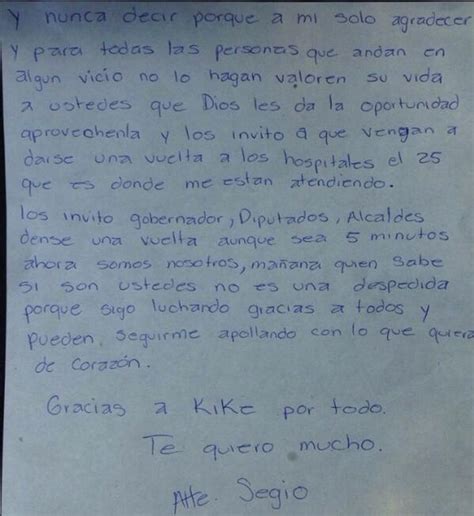 y nunca decir porque a mi solo agradecer
y para todas las personas que andan en
algun vicio no lo hagan valoren su vida
a ustedes que Dios les da la oportunidad
aprovechenla y los invito a que vengan a
darse una vuelta a los hospitales el 25
que es donde me estan atendiendo.
los invito gobernador, Diputados, Alcaldes
dense una vuelta aunque sea 5 minutos
ahora somos nosotros, mañana quien sabe
si son ustedes no es una despedida
porque sigo luchando gracias a todos y
pueden, seguirme apollando con lo que quiera
de corazón.
Gracias a Kike por todo.
Te quiero mucho.
Atte. Segio